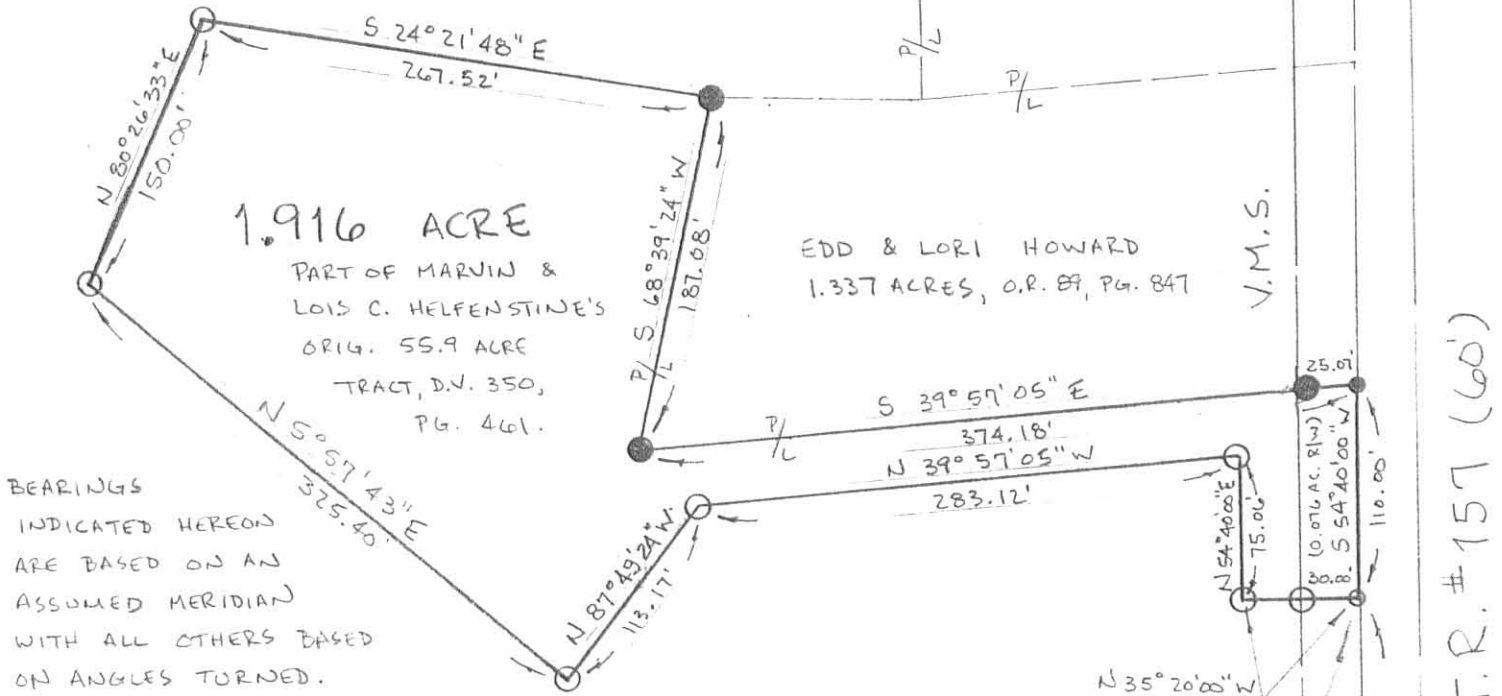 S 24°21'48" E
267.52'
N 80°26'33" E
150.00'
P/L
P/L
1.916 ACRE
PART OF MARVIN &
LOIS C. HELFENSTINE'S
ORIG. 55.9 ACRE
TRACT, D.V. 350,
PG. 461.
P/L S 68°39'24" W
187.08'
EDD & LORI HOWARD
1.337 ACRES, O.R. 89, PG. 847
V.M.S.
25.07'
S 39°57'05" E
374.18'
P/L
N 39°57'05" W
283.12'
N 5°57'43" E
325.40'
N 87°49'24" W
113.17'
N 54°40'00" E
75.06'
(0.076 AC. R/W)
S 54°40'00" W
110.00'
30.00
N 35°20'00" W
BEARINGS
INDICATED HEREON
ARE BASED ON AN
ASSUMED MERIDIAN
WITH ALL OTHERS BASED
ON ANGLES TURNED.
.R. #157 (60')